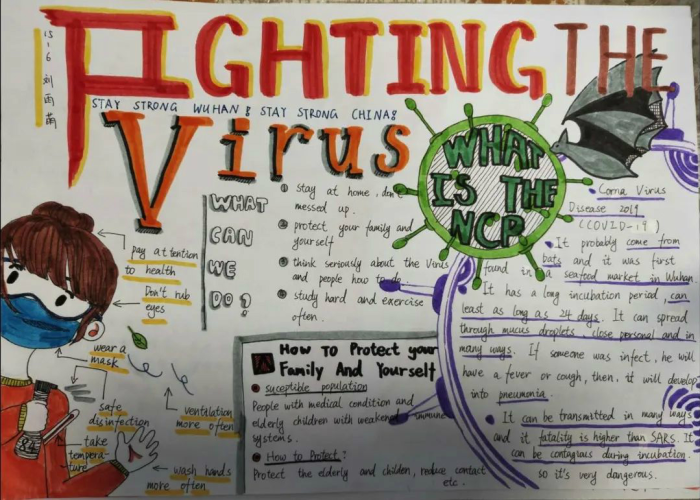 FIGHTING THE
Virus
15-6 刘雨萌
STAY STRONG WUHAN! STAY STRONG CHINA!
WHAT
CAN
WE
DO?
① stay at home, don't
messed up.
② protect your family and
yourself
③ think seriously about the virus
and people how to do.
④ study hard and exercise
often.
WHAT
IS THE
NCP
Corna Virus
Disease 2019
(COVID-19)
It probably come from
bats and it was first
found in a seafood market in Wuhan.
It has a long incubation period, can
least as long as 24 days. It can spread
through mucus droplets, close personal and in
many ways. If someone was infect, he will
have a fever or cough, then, it will develop
into pneumonia.
It can be transmitted in many ways
and it fatality is higher than SARS. It
can be contagious during incubation.
so it's very dangerous.
pay attention
to health
Don't rub
eyes
wear a
mask
safe
disinfection
take
tempera-
ture
ventilation
more often
wash hands
more often
How To Protect your
Family And Yourself
suceptible population
People with medical condition and
elderly children with weakened immune
systems.
How to Protect?
Protect the elderly and childen, reduce contact
etc.